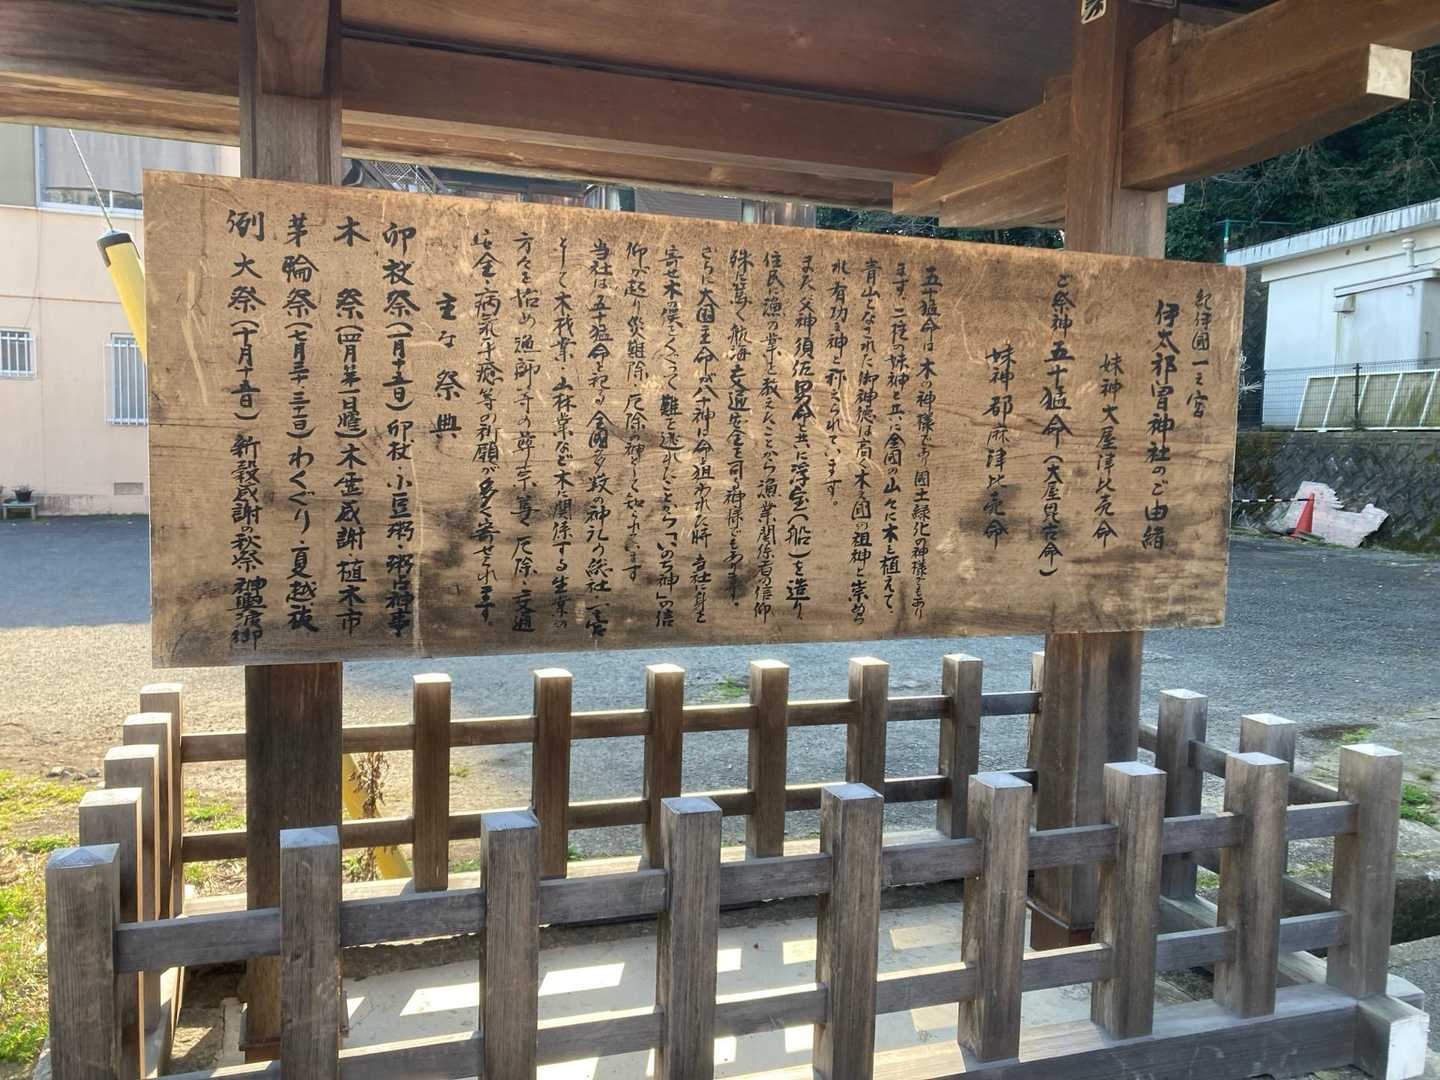 紀伊國一之宮
伊太祁曽神社のご由緒
妹神大屋津比売命
ご祭神五十猛命(大屋毘古命)
妹神都麻津比売命
五十猛命は、木の神様であり国土緑化の神様でもあり
ます。二柱の妹神と共に全国の山々に木を植えて、
青山となされた御神徳は高く木の国の祖神と崇めら
れ有功の神と称えられています。
また父神須佐男命と共に浮宝(船)を造り、
住民に漁の業を教えたことから漁業関係者の信仰
殊に篤く航海、交通安全を司る神様でもあります。
さらに大国主命が八十神に命を狙われた時、当社に身を
寄せ木の俣をくぐって難を逃れたことから「いのち神」の信
仰が起り災難除、厄除の神として知られています
当社は五十猛命を祀る全国多数の神社の総社、一宮
そして木材業・山林業など木に関係する生業の
方々を始め漁師等の尊崇篤く厄除・交通
安全・病気平癒等の祈願が多く寄せられます。
主な祭典
卯杖祭(一月十五日)卯杖・小豆粥・粥占神事
木祭(四月第一日曜)木霊感謝植木市
茅輪祭(七月三十・三十一日)わくぐり・夏越祓
例大祭(十月十五日)新穀感謝の秋祭神輿渡御